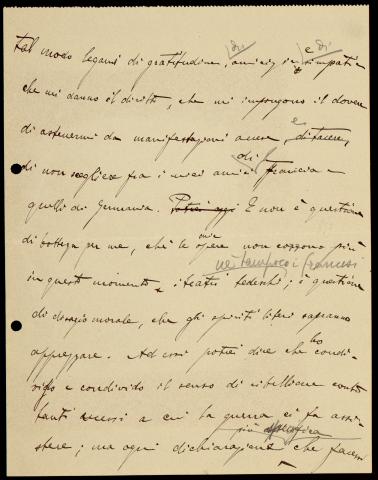 tal modo legami di gratitudine, di amicizia e di simpatia
che mi danno il diritto, che mi impongono il dovere
di astenermi da manifestazioni avverse, e di tacere,
di non scegliere fra i miei amici di Francia e
quelli di Germania. Potrei oggi E non è questione
di bottega per me, chè le mie opere non corrono più
in questi momenti, i teatri tedeschi; nè tampoco i francesi è questione
di disagio morale, che gli spiriti liberi sapranno
apprezzare. Ad essi potrei dire che ho condi-
viso e condivido il senso di ribellione contro
tanti eccessi a cui la guerra ci fa assi-
stere; ma ogni dichiarazione più specifica che facessi